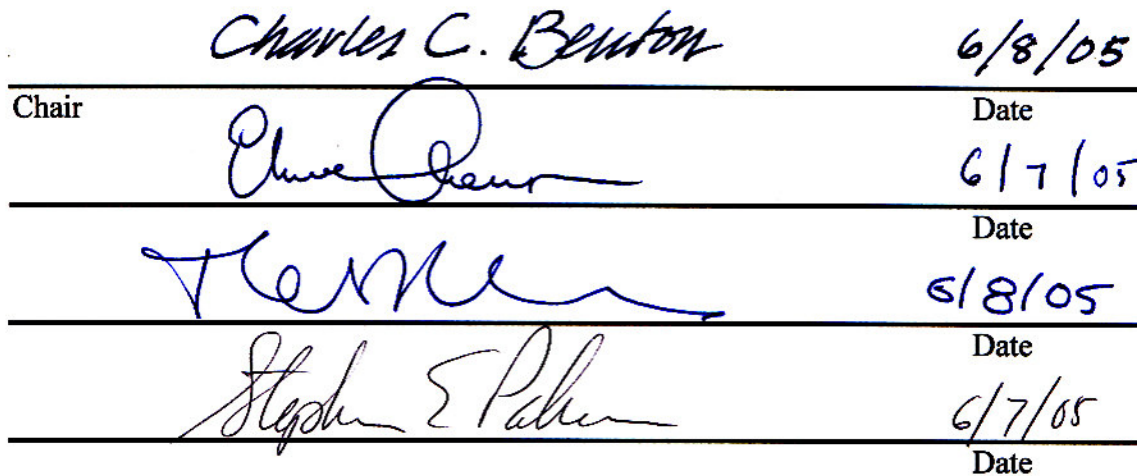 Charles C. Benton 6/8/05
Chair Date
6/7/05
Date
6/8/05
Date
Stephen E Palmer 6/7/05
Date